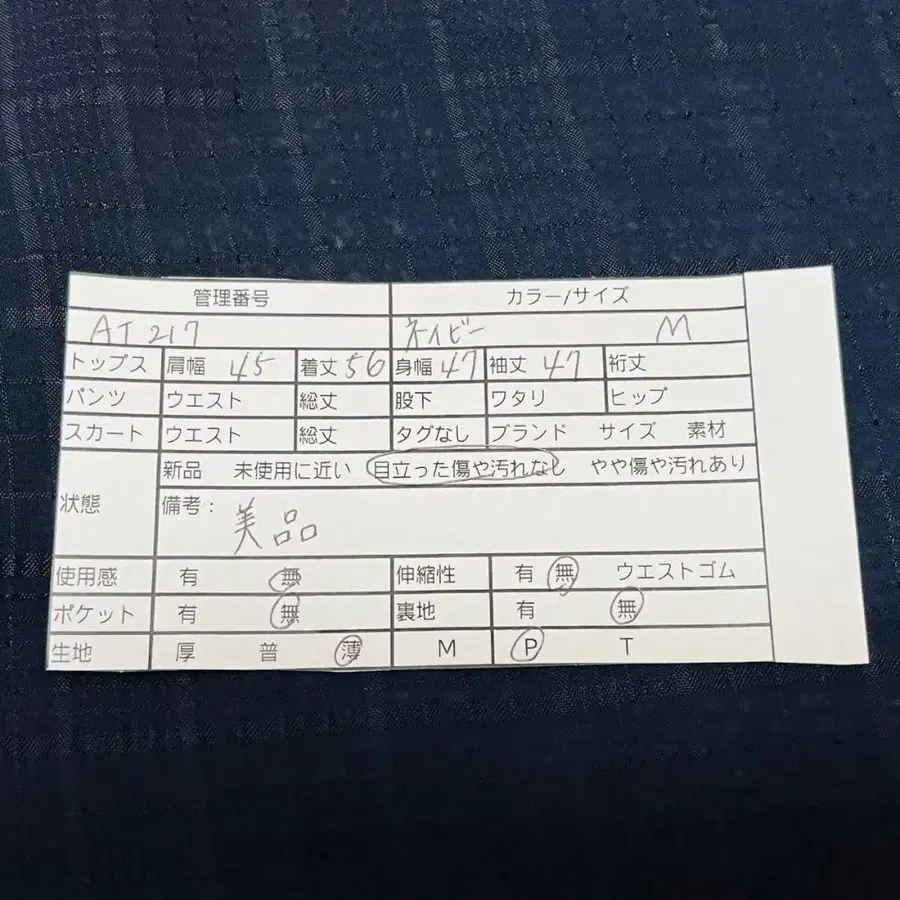 管理番号 カラー/サイズ
AT217 ネイビー M
トップス 肩幅 45 着丈 56 身幅 47 袖丈 47 裄丈
パンツ ウエスト 総丈 股下 ワタリ ヒップ
スカート ウエスト 総丈 タグなし ブランド サイズ 素材
状態 新品 未使用に近い 目立った傷や汚れなし やや傷や汚れあり
備考: 美品
使用感 有 無 伸縮性 有 無 ウエストゴム
ポケット 有 無 裏地 有 無
生地 厚 普 薄 M P T